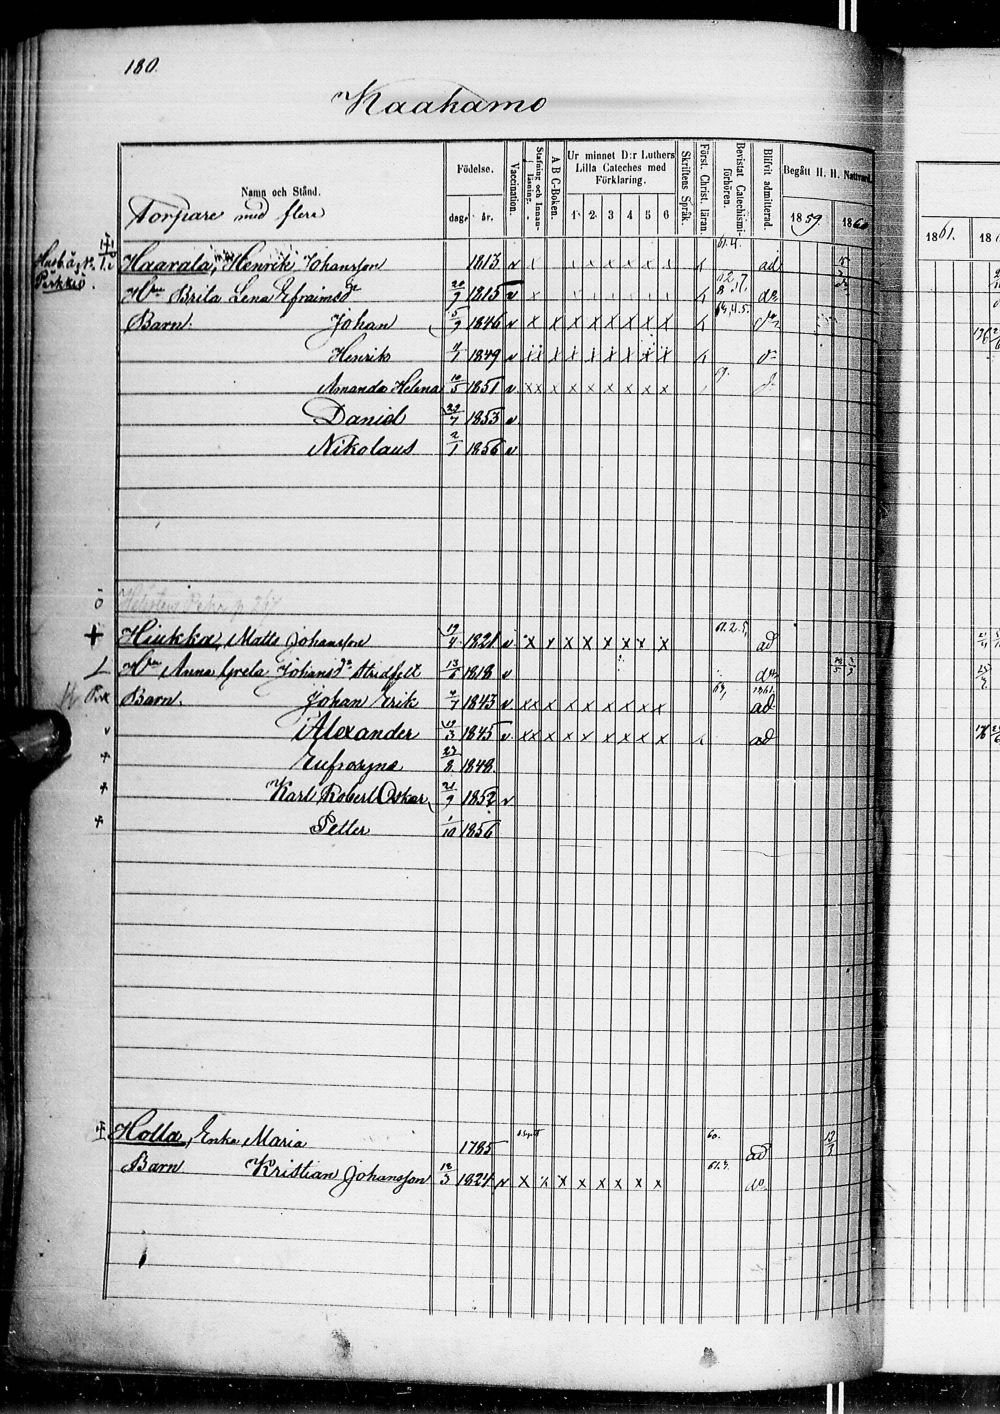 180.
Kaakamo
Namn och Stånd.
Födelse.
dag. år.
Vaccination.
Stafning och Innan-läsning.
A B C-Boken.
Ur minnet D:r Luthers Lilla Cateches med Förklaring.
1 2 3 4 5 6
Skriftens Språk.
Först. Christ. läran.
Bevistat Catechismi förhören.
Blifvit admitterad.
Begått H. H. Nattvard.
1859. 1860
1861.
Torpare med flera
Haarala, Henrik Johansson 1813 v ad
Perkkiö.
Hru Brita Lena Efraimsdr 20/9 1815 v do
Barn. Johan 5/9 1846 v x x x x x x x x do
Henrik 1849 v x x x x x x x x
Amanda Helena 10/5 1851 v x x x x x x x x x
Daniel 29/7 1853 v
Nikolaus 2/1 1856 v
Hiukka, Matts Johansson 19/4 1821 v x x x x x x x x 61.2.5. ad
Hru Anna Greta Johansdr Stridfelt 13/5 1818 v do
Barn. Johan Erik 1843 v x x x x x x x x x 1861. ad
Alexander 19/3 1845 v x x x x x x x x x ad
Eufrosyne 27/8 1848.
Karl Robert Oskar 21/9 1852 v
Petter 1/10 1856
Holla, Enka Maria 1785 60. ad
Barn Kristian Johansson 18/3 1824 v x x x x x x x x 61.3. do